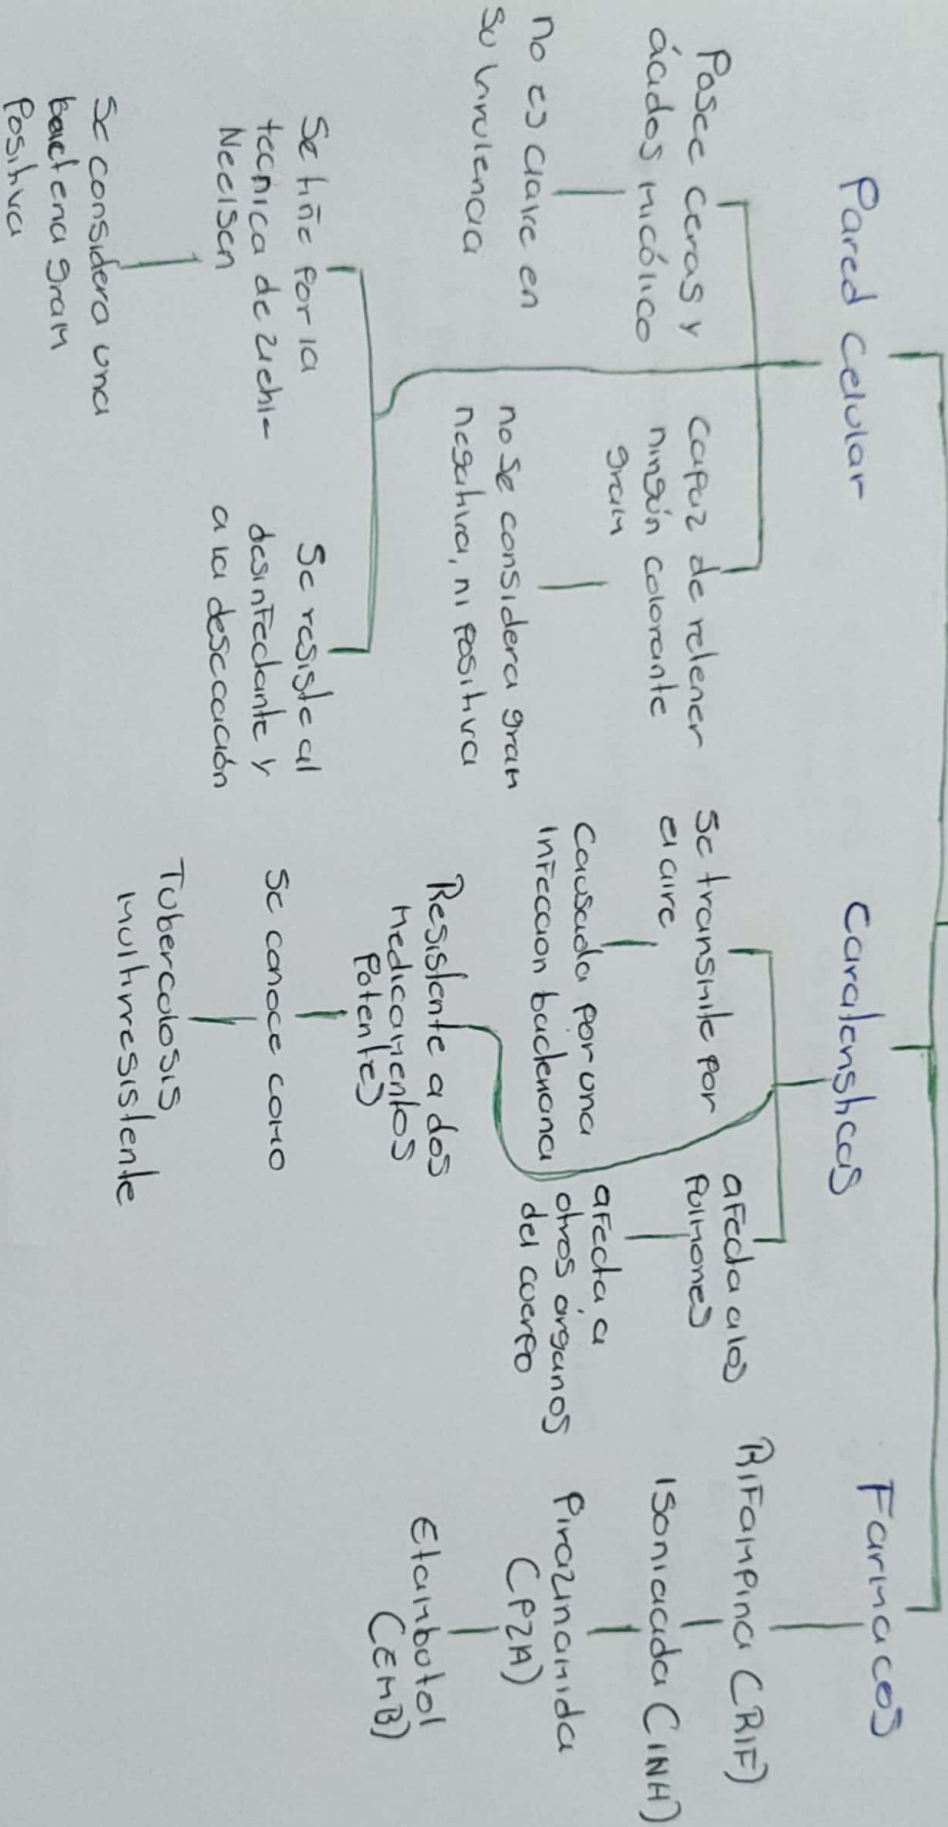 Pared Celular
Posee ceras y
ácidos micólico
no es clave en
su virulencia
capaz de retener
ningún colorante
gram
no se considera gram
negativa, ni positiva
Se tiñe por la
tecnica de ziehl-
Neelsen
Se considera una
bacteria gram
Positiva
Se resiste al
desinfectante y
a la desecación
Caracteristicas
Se transmite por
el aire
Causada por una
infeccion bacteriana
afecta a los
Pulmones
afecta a
otros órganos
del cuerpo
Resistente a dos
medicamentos
Potentes
Se conoce como
Tubercolosis
multirresistente
Farmacos
Rifampina (RIF)
Isoniacada (INH)
Pirazinamida
(PZA)
Etambutol
(EMB)